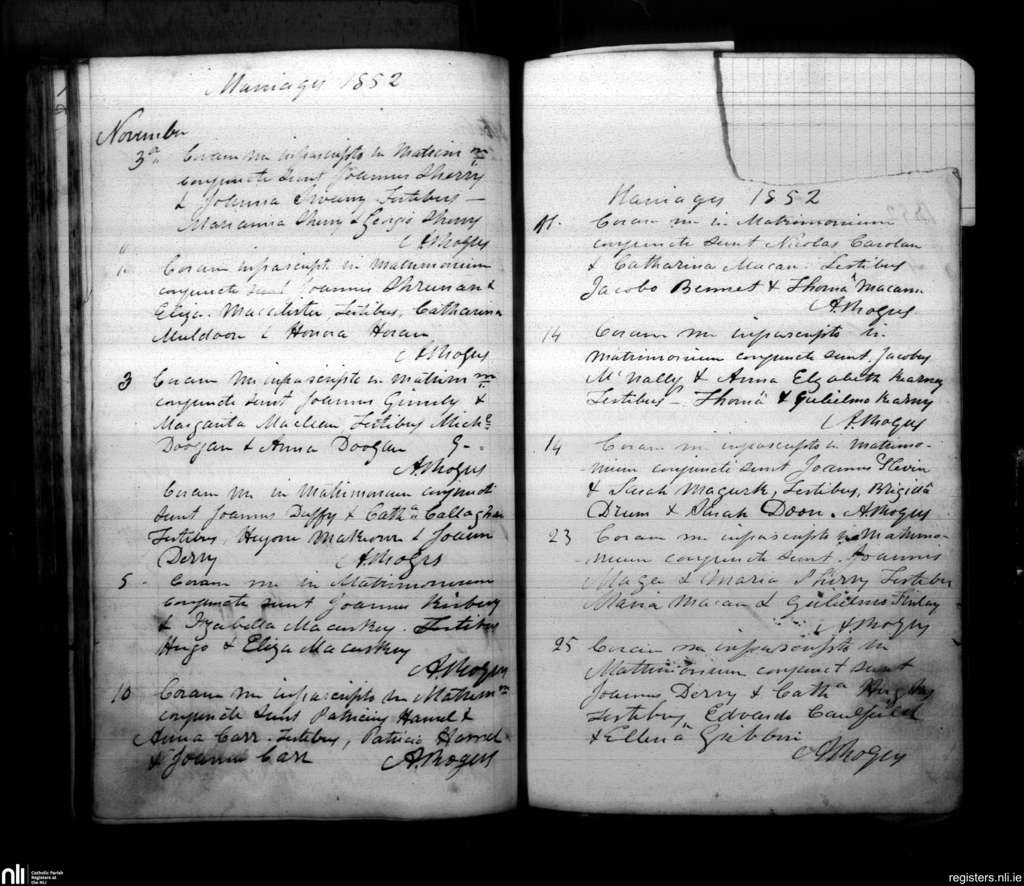 Marriages 1852
November
3a Coram me infrascripto in Matrim m
conjuncti sunt Joannes Sherry
& Joanna Testibus —
Marianna Sherry & Georgio Sherry
A Rogers
" Coram infrascripto in Matrimonium
conjuncti sunt Joannes &
Eliza Macalister, Testibus, Catharina
Muldoon & Honora Horan
A Rogers
3 Coram me infrascripto in Matrim m
conjuncti sunt Joannes &
Margarita Maclean, Testibus Michl
Doogan & Anna Doogan
A Rogers
Coram me in Matrimonium conjuncti
sunt Joannes Duffy & Catha Callaghan
Testibus, Hugone & Joanna
Derry A Rogers
5 - Coram me in Matrimonium
conjuncti sunt Joannes
& Izabella Macuskey. Testibus
Hugo & Eliza Macuskey
A Rogers
10 Coram me infrascripto in Matrim m
conjuncti sunt Patricius Hamel &
Anna Carr. Testibus, Patricio Hamel
& Joanna Carr A. Rogers
Marriages 1852
11. Coram me in Matrimonium
conjuncti sunt Nicolas Carolan
& Catharina Macan. Testibus
Jacobo Bennet & Thoma Macann
A. Rogers
14 Coram me infrascripto in
matrimonium conjuncti sunt, Jacobus
McNally & Anna Elizabeth Kearney
Testibus — Thomâ & Gulielmo Kearny
A Rogers
14 Coram me infrascripto in matrimo-
-nium conjuncti sunt Joannes Slevin
& Sarah Magurk, Testibus, Brigidâ
Drum & Sarah Doon. A Rogers
23 Coram me infrascripto in Matrimo-
-nium conjuncti sunt. Joannes
& Maria Sherry Testibus
Maria Macan & Gulielmus Finlay
A Rogers
25 Coram me infrascripto in
Matrimonium conjuncti sunt
Joannes Derry & Catha Hughes
Testibus, Edvardo Caulfield
& Ellenâ Gribbin
A Rogers
nli
Catholic Parish
Registers at
the NLI
registers.nli.ie